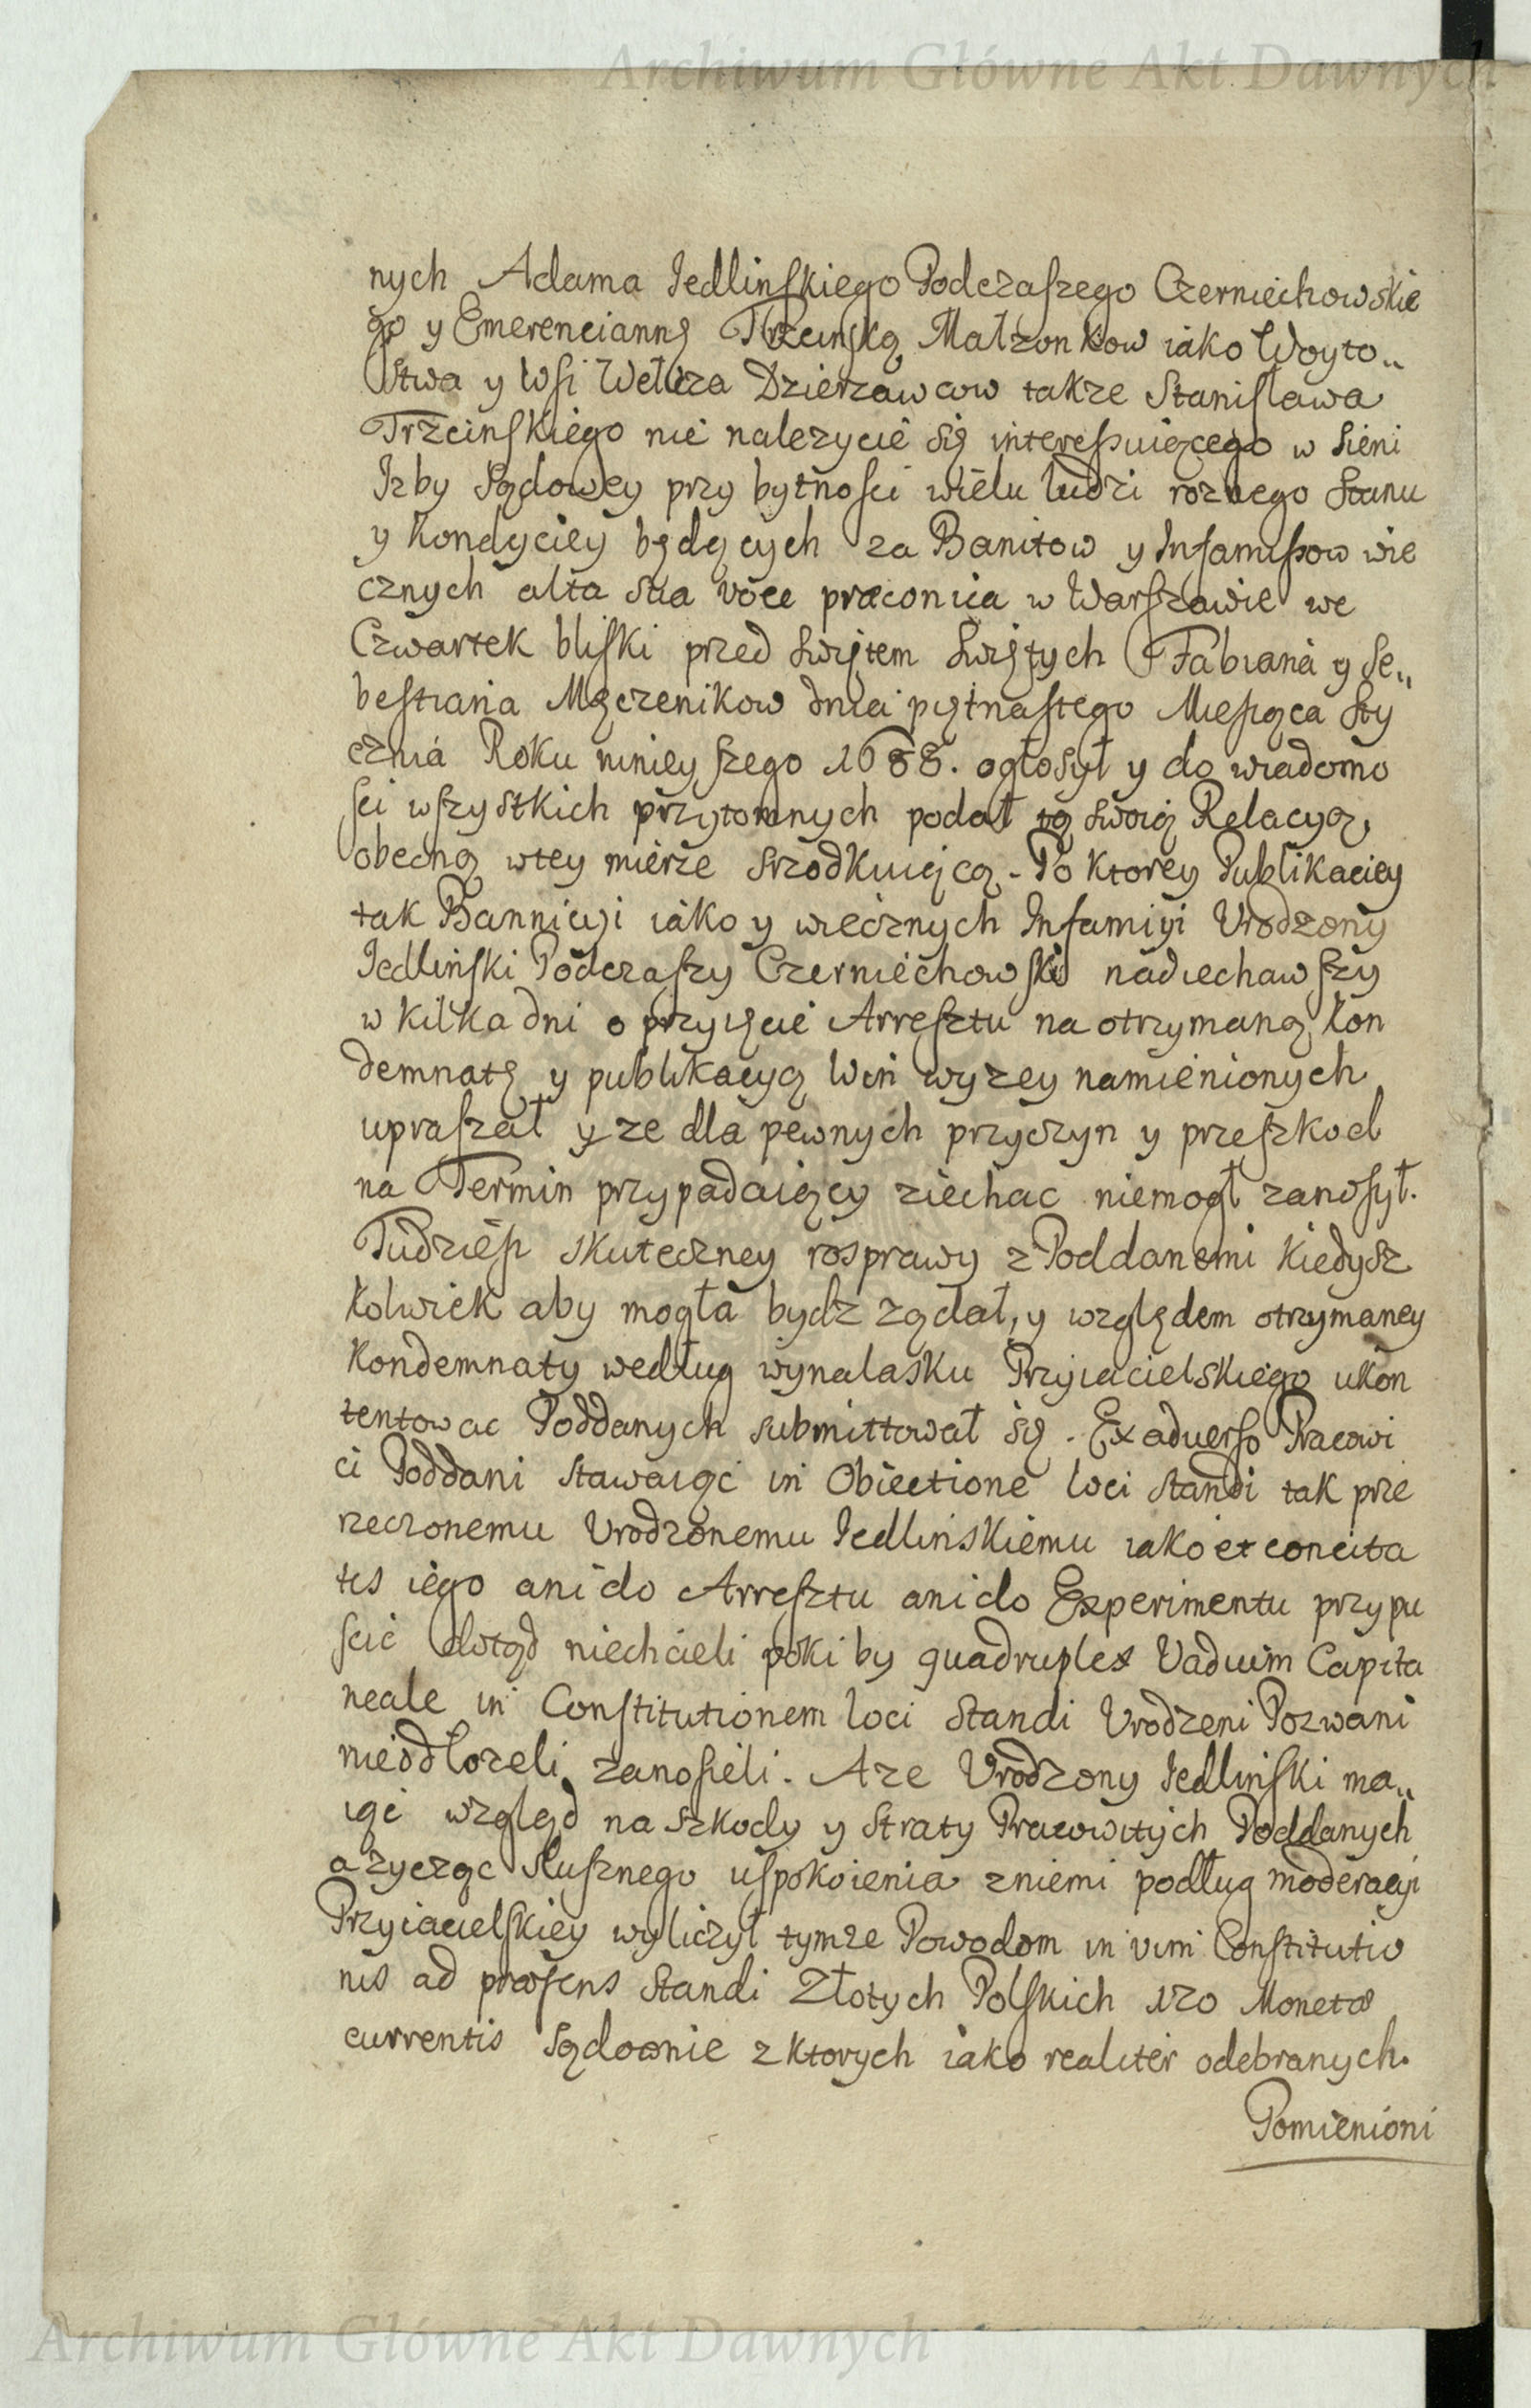 Archiwum Główne Akt Dawnych
nych Adama Jedlinskiego Podczaszego Czerniechowskie
go y Emerenciannę Trzcinską Małzonkow iako Woyto„
stwa y Wsi Wełcza Dzierzawcow takze Stanisława
Trzcinskiego nie nalezycie się interessuiącego w sieni
Izby Sądowey przy bytnosci wielu ludzi roznego stanu
y kondyciey będących za Banitow y Infamissow wie
cznych alta sua voce præconica w Warszawie we
Czwartek bliski przed swiętem Swiętych Fabiana y Se„
bestiana Męczenikow dnia piętnastego Miesiąca Sty
cznia Roku ninieyszego 1688. ogłosył y do wiadomo
sci wszystkich przytomnych podał tą swoią Relacyą,
obecną wtey mierze srzodkuiącą - Po ktorey Publikaciey
tak Bannicyi iako y wiecznych Infamiyi Urodzony
Jedlinski Podczaszy Czerniechowski nadiechawszy
w kilka dni o przyięcie Arresztu na otrzymaną kon
demnatę y publikacyą Win wyzey namienionych
upraszał y ze dla pewnych przyczyn y przeszkod
na Termin przypadaiący ziechac niemogł zanosył.
Tudziesz skuteczney rosprawy z Poddanemi kiedysz
kolwiek aby mogła bydz ządał, y względem otrzymaney
kondemnaty według wynalasku Przyiacielskiego ukon
tentowac Poddanych submittował się. Ex aduerso Pracowi
ci Poddani stawaiąc in Obiectione loci standi tak prze
rzeczonemu Urodzonemu Jedlinskiemu iako et concita
tis iego ani do Arresztu ani do Experimentu przypu
scic dotąd niechcieli poki by quadruplex Vadium Capita
neale in Constitutionem loci standi Urodzeni Pozwani
nieodłozeli zanosieli. A ze Urodzony Jedlinski ma„
iąc wzgląd na szkody y straty Pracowitych Poddanych
a zycząc słusznego uspokoienia zniemi podług moderacyi
Przyiacielskiey wyliczył tymze Powodom in vim Constitutio
nis ad præsens standi Złotych Polskich 170 Monetæ
currentis sądownie z ktorych iako realiter odebranych.
Pomienioni
Archiwum Główne Akt Dawnych